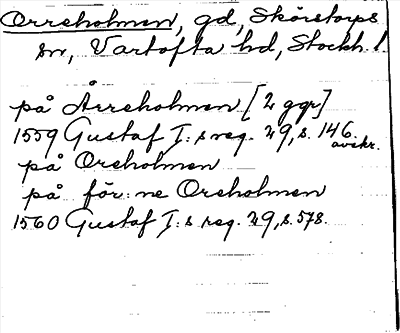 Orreholmen, gd, Skörstorps
sn, Vartofta hd, Skarab. l.
på Årreholmen [2 ggr]
1559 Gustaf I:s reg. 29, s. 146.
avskr.
på Oreholmen
på för:ne Oreholmen
1560 Gustaf I:s reg. 29, s. 578.